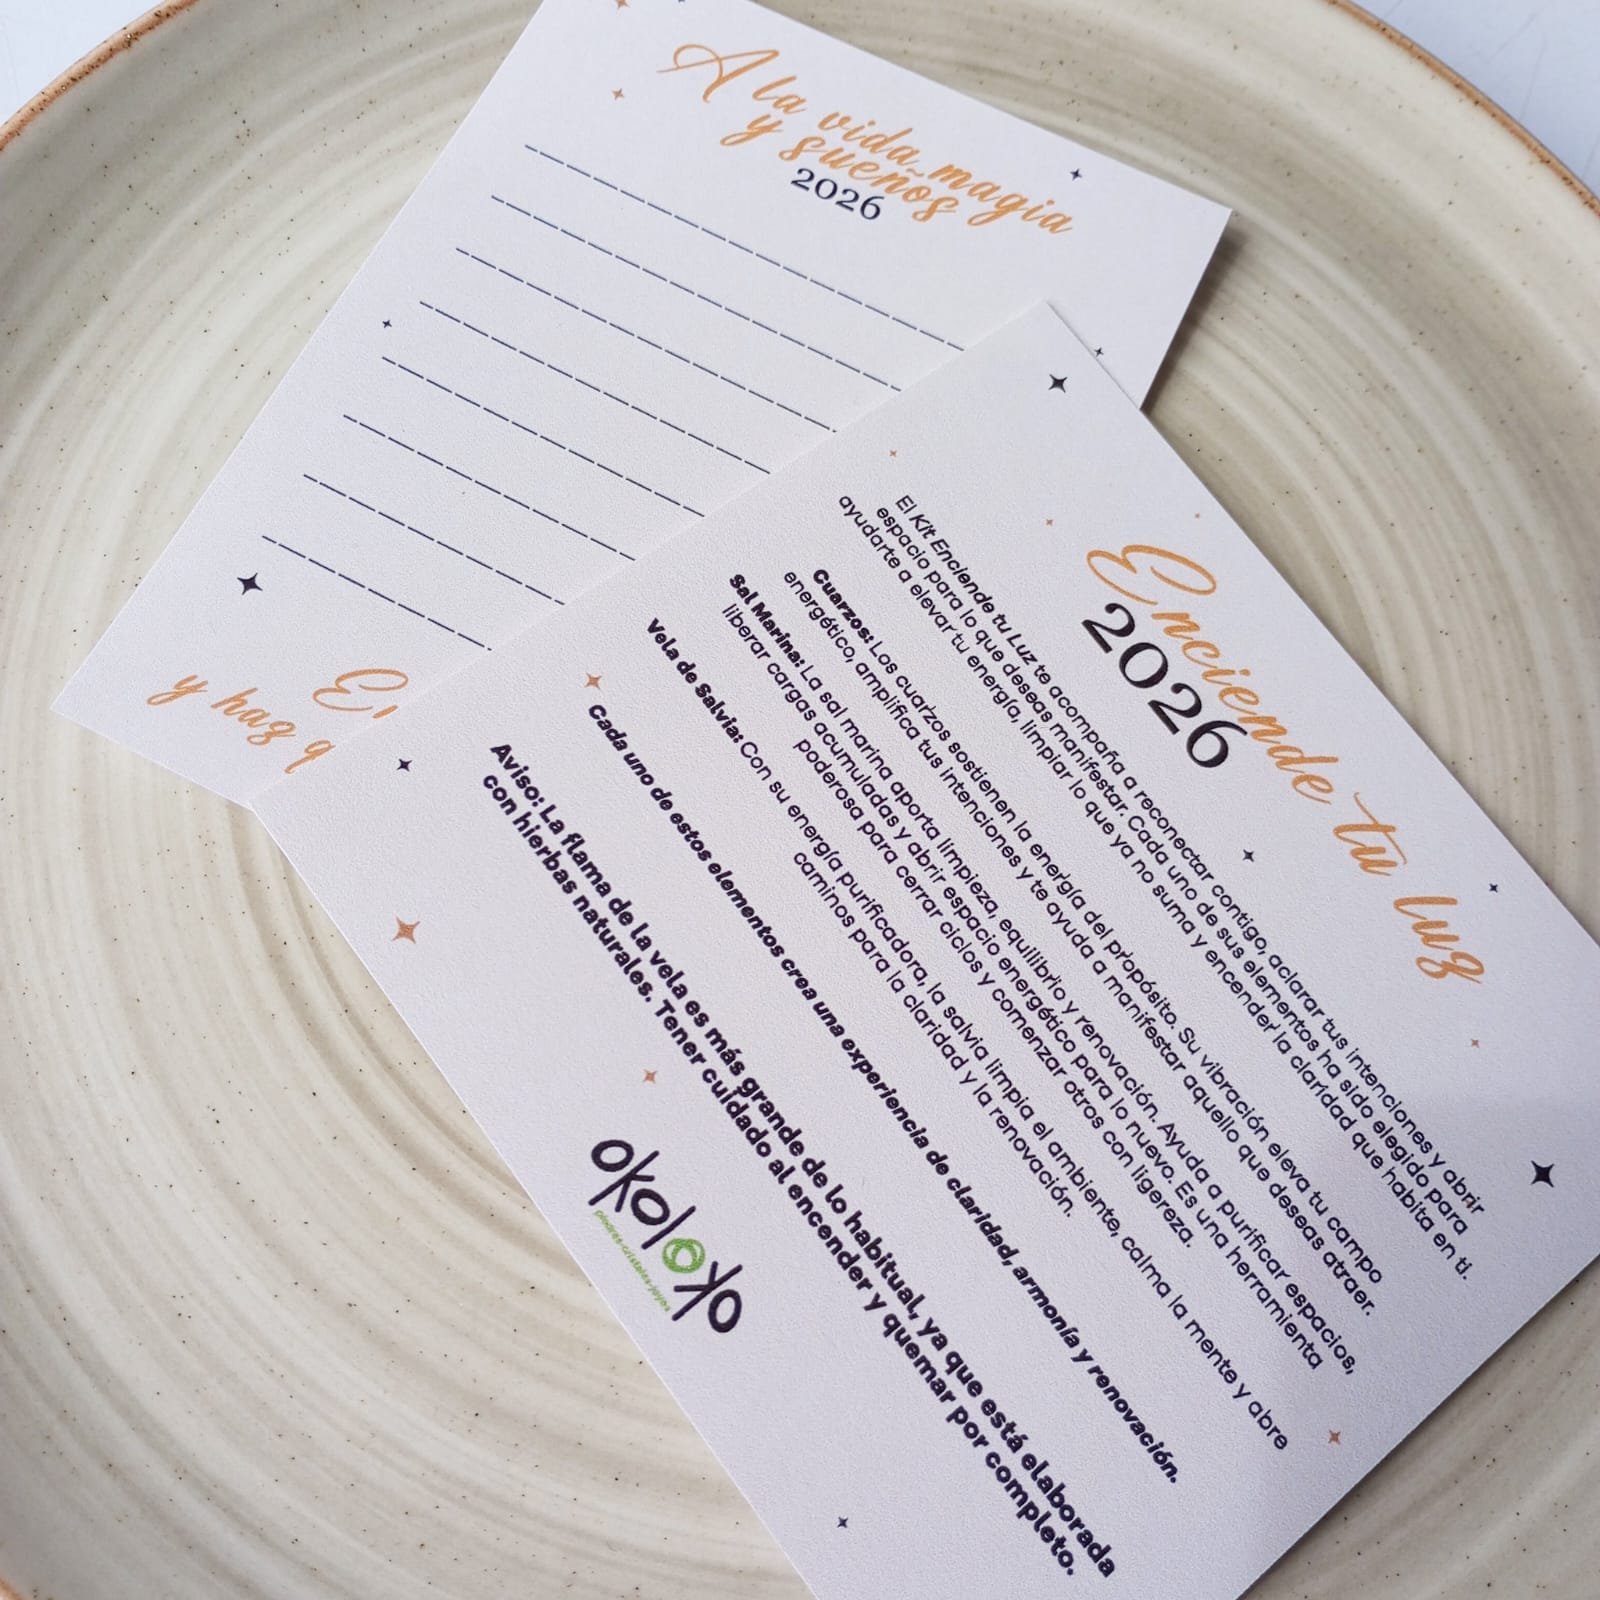 A la vida magia
y sueños
2026
y haz q
Enciende tu luz
2026
El Kit Enciende tu Luz te acompaña a reconectar contigo, aclarar tus intenciones y abrir
espacio para lo que deseas manifestar. Cada uno de sus elementos ha sido elegido para
ayudarte a elevar tu energía, limpiar lo que ya no suma y encender la claridad que habita en ti.
Cuarzos: Los cuarzos sostienen la energía del propósito. Su vibración eleva tu campo
energético, amplifica tus intenciones y te ayuda a manifestar aquello que deseas atraer.
Sal Marina: La sal marina aporta limpieza, equilibrio y renovación. Ayuda a purificar espacios,
liberar cargas acumuladas y abrir espacio energético para lo nuevo. Es una herramienta
poderosa para cerrar ciclos y comenzar otros con ligereza.
Vela de Salvia: Con su energía purificadora, la salvia limpia el ambiente, calma la mente y abre
caminos para la claridad y la renovación.
Cada uno de estos elementos crea una experiencia de claridad, armonía y renovación.
Aviso: La flama de la vela es más grande de lo habitual, ya que está elaborada
con hierbas naturales. Tener cuidado al encender y quemar por completo.
okoloko
piedras·cristales·joyas